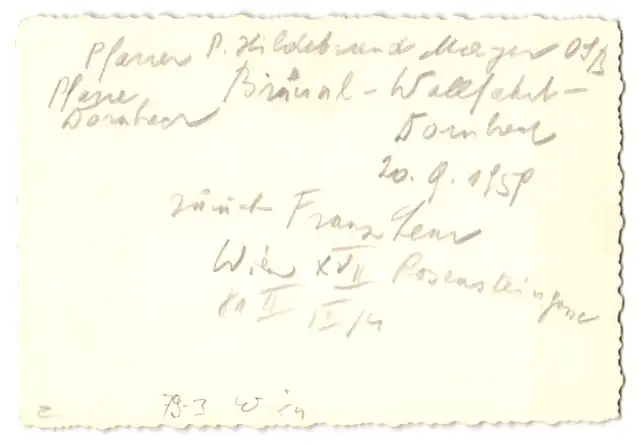 Pfarrer P. Hildebrand Mayer OSB
Pfarre Bründl-Wallfahrt-
Dornbach Dornbach
20. 9. 1959
zurück Franz
Wien XVII Rosensteingasse
II
79-3 Wien